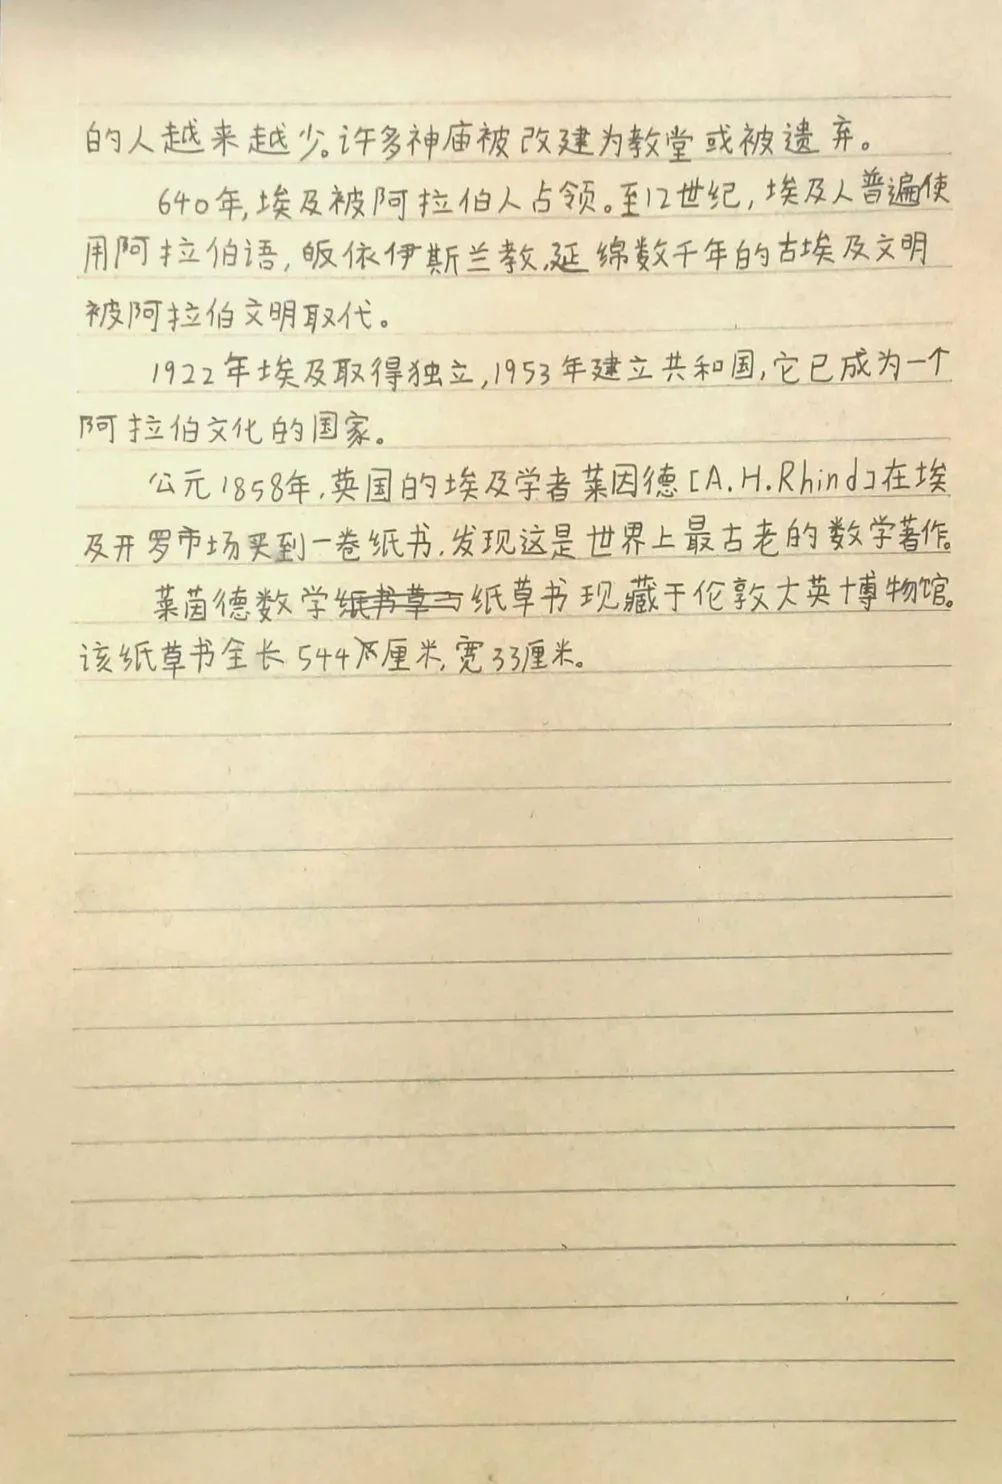 的人越来越少。许多神庙被改建为教堂或被遗弃。
640年,埃及被阿拉伯人占领。至12世纪,埃及人普遍使
用阿拉伯语,皈依伊斯兰教,延绵数千年的古埃及文明
被阿拉伯文明取代。
1922年埃及取得独立,1953年建立共和国,它已成为一个
阿拉伯文化的国家。
公元1858年,英国的埃及学者莱因德[A.H.Rhind]在埃
及开罗市场买到一卷纸书,发现这是世界上最古老的数学著作。
莱茵德数学纸草书现藏于伦敦大英博物馆。
该纸草书全长544厘米,宽33厘米。